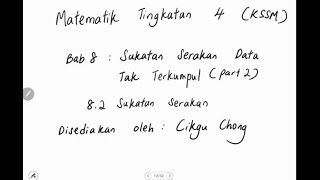 Matematik Tingkatan 4 (KSSM)
Bab 8 : Sukatan Serakan Data
Tak Terkumpul (Part 2)
8.2 Sukatan Serakan
Disediakan oleh : Cikgu Chong